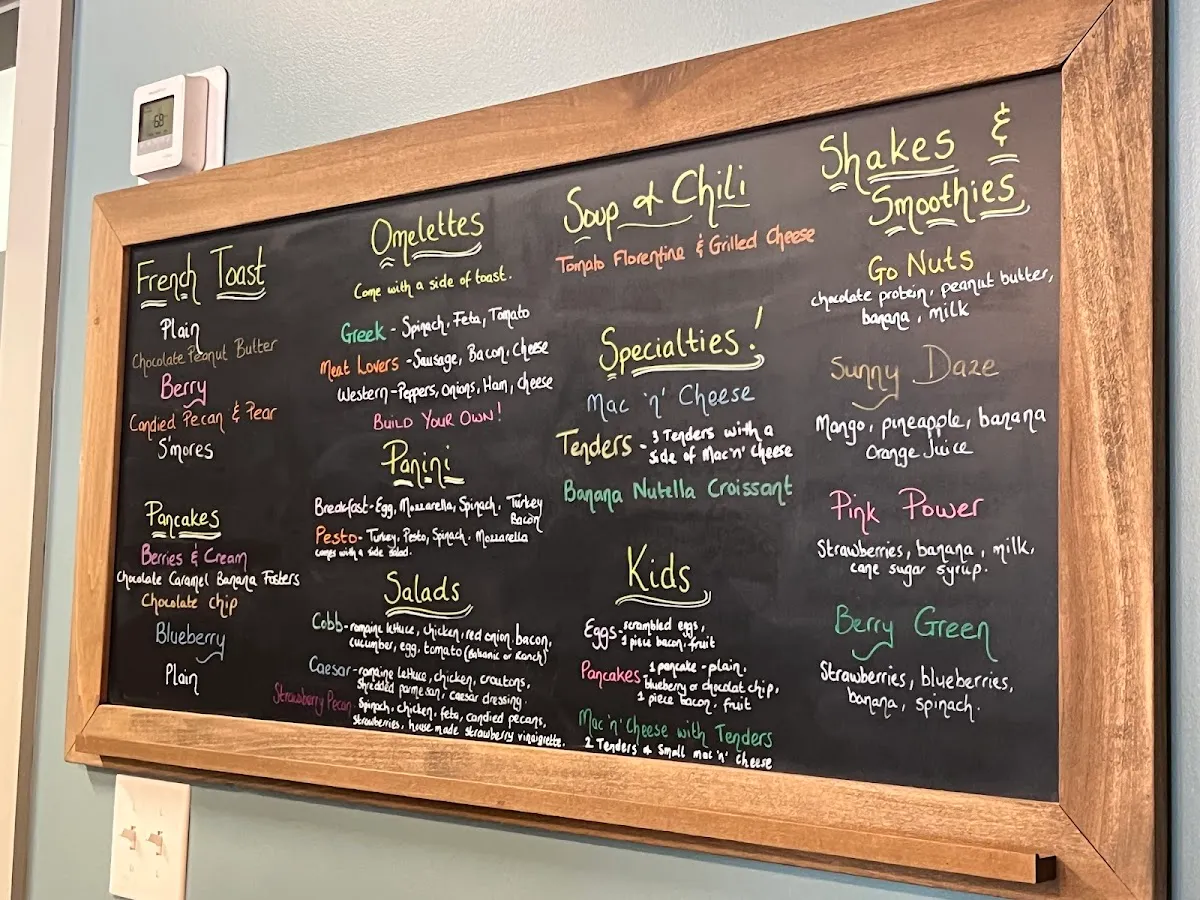 68
French Toast
Plain
Chocolate Peanut Butter
Berry
Candied Pecan & Pear
S'mores
Pancakes
Berries & Cream
Chocolate Caramel Banana Fosters
Chocolate chip
Blueberry
Plain
Omelettes
Come with a side of toast.
Greek - Spinach, Feta, Tomato
Meat Lovers - Sausage, Bacon, Cheese
Western - Peppers, Onions, Ham, Cheese
BUILD YOUR OWN!
Panini
Breakfast - Egg, Mozzarella, Spinach, Turkey
Bacon
Pesto - Turkey, Pesto, Spinach, Mozzarella
comes with a side salad.
Salads
Cobb - romaine lettuce, chicken, red onion, bacon,
cucumber, egg, tomato (Balsamic or Ranch)
Caesar - romaine lettuce, chicken, croutons,
shredded parmesan, caesar dressing.
Strawberry Pecan - Spinach, chicken, feta, candied pecans,
strawberries, house made strawberry vinaigrette.
Soup & Chili
Tomato Florentine & Grilled Cheese
Specialties!
Mac 'n' Cheese
Tenders - 3 Tenders with a
side of Mac 'n' cheese
Banana Nutella Croissant
Kids
Eggs - scrambled eggs,
1 piece bacon, fruit
Pancakes 1 pancake - plain,
blueberry or chocolat chip,
1 piece bacon, fruit
Mac 'n' Cheese with Tenders
2 Tenders & Small mac 'n' cheese
Shakes &
Smoothies
Go Nuts
chocolate protein, peanut butter,
banana, milk
Sunny Daze
Mango, pineapple, banana
Orange Juice
Pink Power
Strawberries, banana, milk,
cane sugar syrup.
Berry Green
Strawberries, blueberries,
banana, spinach.